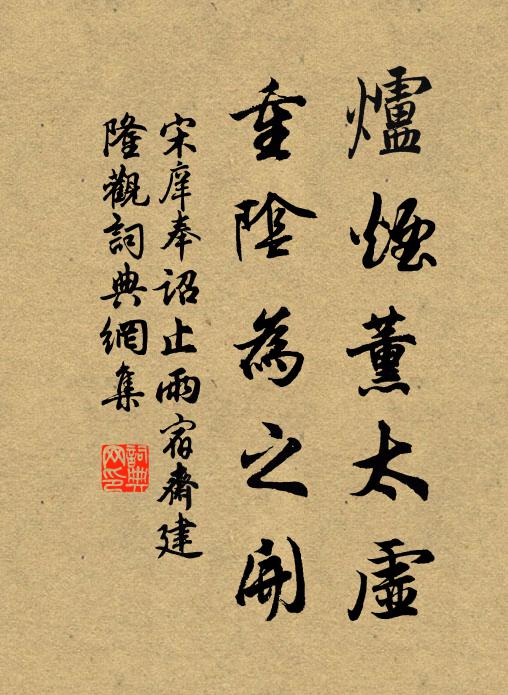 爐煙薰太虛
重陰為之開
宋庠奉詔止雨宿齋建
隆觀詞典網集
詞典网印